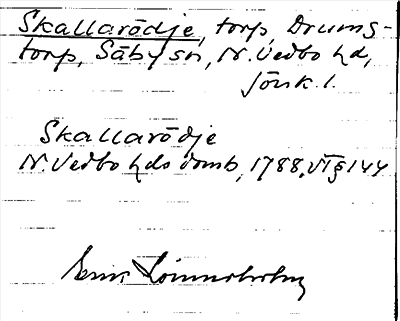 Skallarödje, torp, Drums-
torp, Säby sn, N. Vedbo hd,
Jönk. l.
Skallarödje
N. Vedbo hds domb, 1788, VT § 144